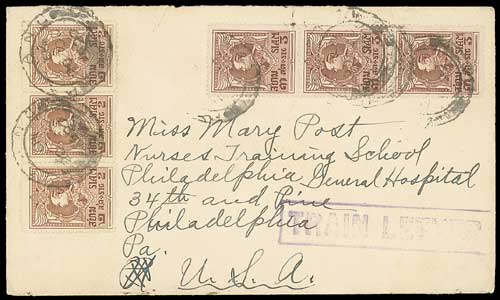 SIAM
2 SATANG 2
SIAM
2 SATANG 2
SIAM
2 SATANG 2
SIAM
SIAM
SIAM
Miss Mary Post
Nurses Training School
Philadelphia General Hospital
34th and Pine
Philadelphia
Pa.
U.S.A.
TRAIN LETTER